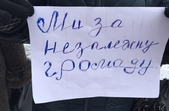 Ми за
незалежну
громаду.